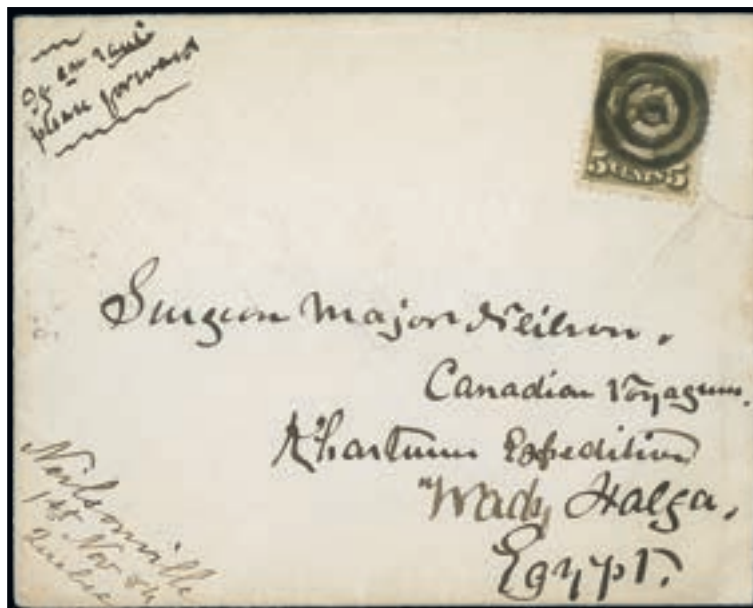 please forward
5 CENTS 5
Surgeon Major Neilson.
Canadian Voyageurs.
Khartum Expedition
"Wady Halfa,
Egypt.
Neilsonville
1st Nov 84
Quebec